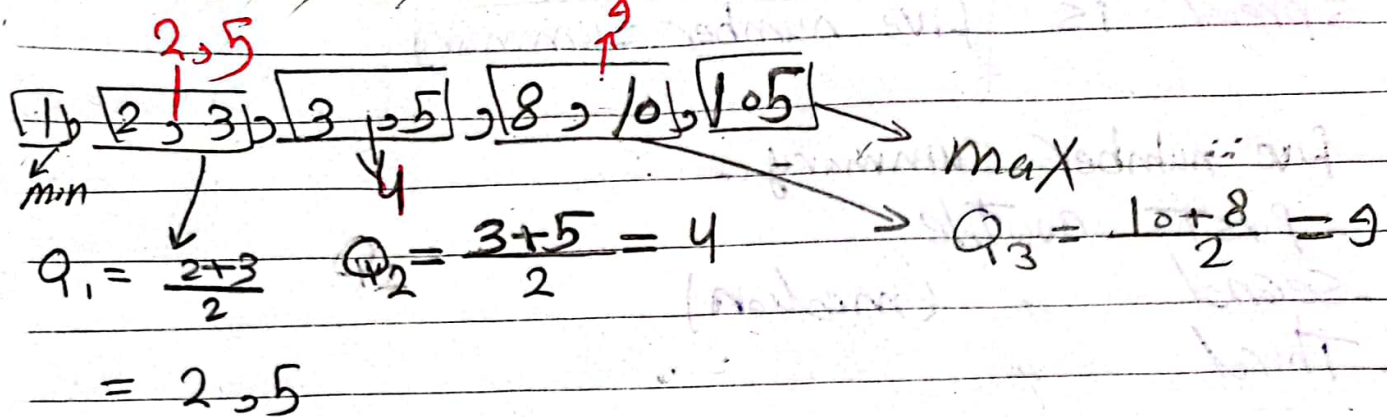 2,5 9
1, 2, 3, 3, 5, 8, 10, 105
min 4 max
Q₁ = 2+3/2 Q₂ = 3+5/2 = 4 Q₃ = 10+8/2 = 9
= 2,5